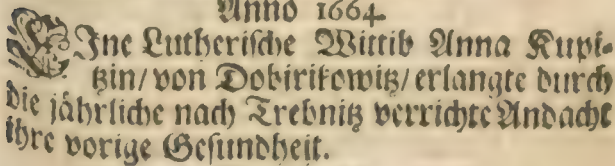 Anno 1664.
EIne Lutherische Wittib Anna Kupi-
tzin/ von Dobirikowitz/ erlangte durch
die jährliche nach Trebnitz verrichte Andacht
ihre vorige Gesundheit.